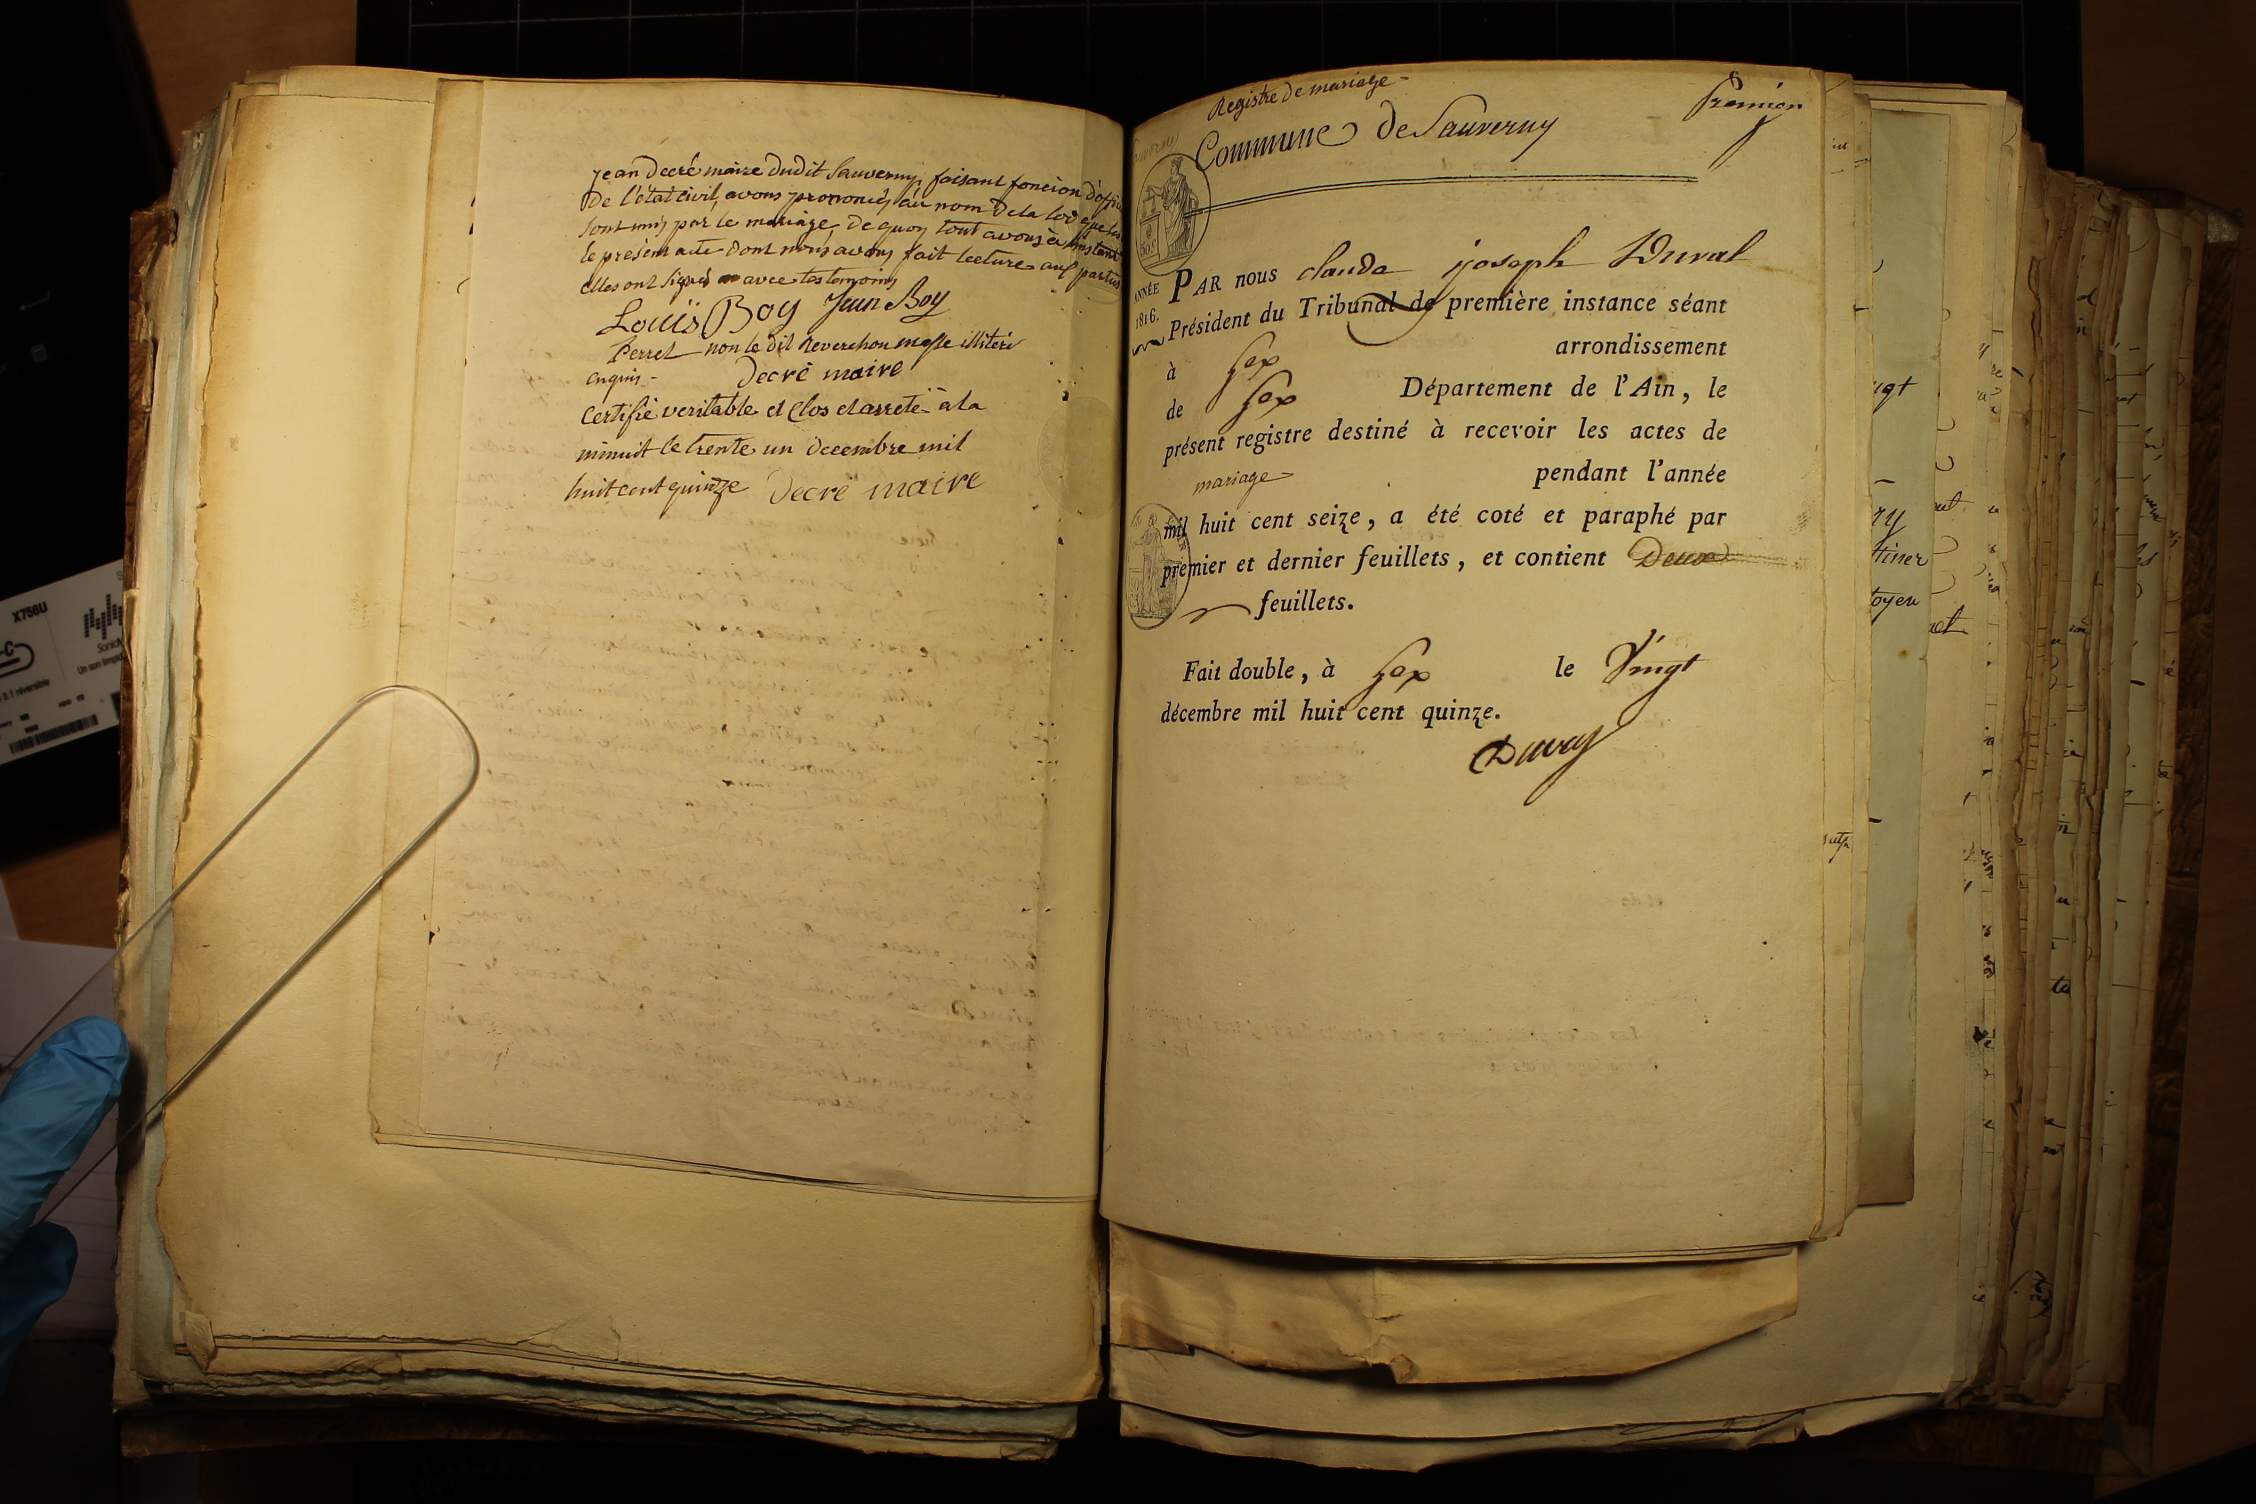 jean Decré maire dudit Sauverny, faisant foncion d'offici
De l'état civil, avons prononcés au nom De la loi que les
sont unis par le mariage, De quoy tout avons à l'instant
le présent acte dont nous avons fait lecture aux parties
elles ont signés avec les temoins
Louis Boy Jean Boy
Perret non le dit Reverchon illiteré
enquis -
Decré maire
Certifié veritable et Clos et arreté à la
minuit le trente un decembre mil
huit cent quinze Decré maire
Registre de mariage -
Premier
Commune de Sauverny
ANNÉE
1816.
PAR nous claude joseph Duval
Président du Tribunal de première instance séant
à Gex arrondissement
de Gex Département de l'Ain, le
présent registre destiné à recevoir les actes de
mariage pendant l'année
mil huit cent seize, a été coté et paraphé par
premier et dernier feuillets, et contient Deux
feuillets.
Fait double, à Gex le Vingt
décembre mil huit cent quinze.
Duval
X756U